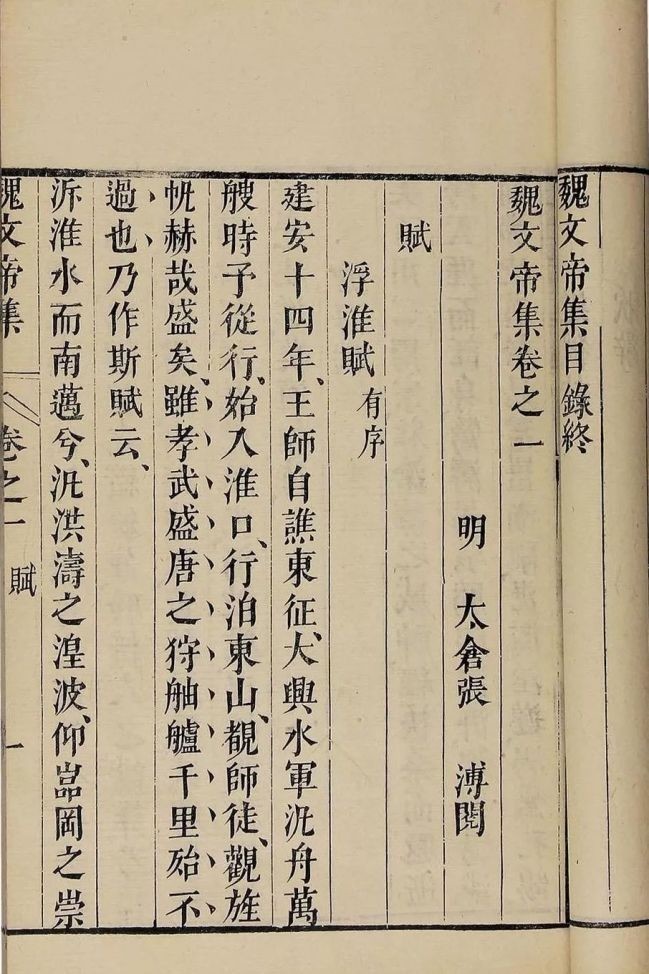 魏文帝集目錄終
魏文帝集卷之一
明 太倉張 溥閱
賦
浮淮賦 有序
建安十四年、王師自譙東征、大興水軍汎舟萬
艘時予從行、始入淮口、行泊東山、覩師徒、觀旌
帆赫哉盛矣、雖孝武盛唐之狩舳艫千里殆不
過也乃作斯賦云、
泝淮水而南邁兮、汎洪濤之湟波、仰嵒岡之崇
魏文帝集 卷之一 賦 一